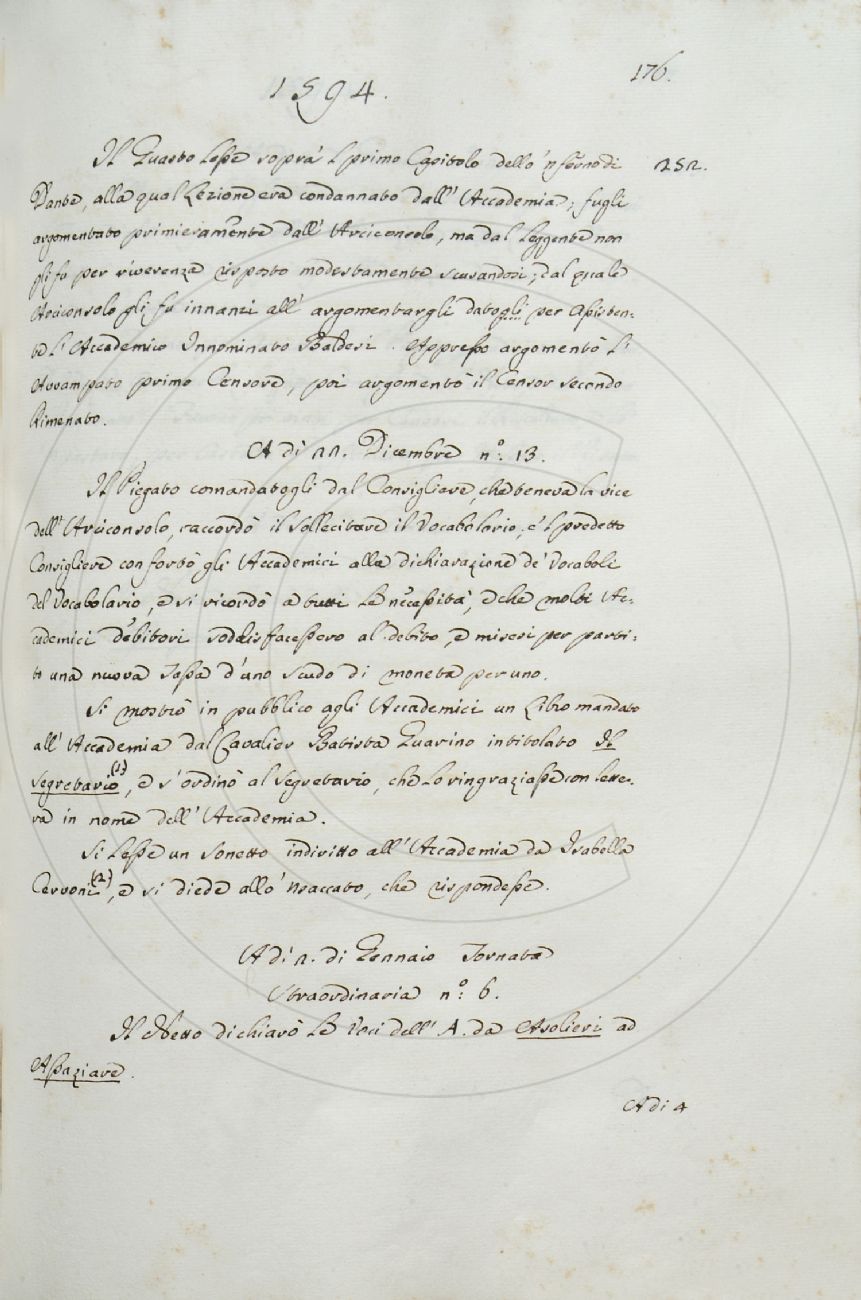 176.
1594.
Il Guasto Lesse sopra 'l primo Capitolo dello 'nferno di 252.
Dante, alla qual Lezione era condannato dall' Accademia; fugli
argomentato primieramente dall' Arciconsolo, ma dal Leggente non
gli fu per riverenza risposto modestamente scusandosi; dal quale
Arciconsolo gli fu innanzi all' argomentargli datogli per Assisten:
te L' Accademico Innominato Baldesi. Appresso argomentò L'
Avvampato primo Censore, poi argomentò il Censor secondo
Rimenato.
A dì 22. Dicembre n.º: 13.
Il Piegato comandatogli dal Consigliere, che teneva la vice
dell' Arciconsolo, raccordò il sollecitare il Vocabolario, e 'l predetto
Consigliere confortò gli Accademici alla dichiarazione de' Vocaboli
del Vocabolario, e si ricordò a tutti Le necessità, e che molti Ac:
cademici debitori soddisfacessero al debito, e misesi per parti:
to una nuova Tassa d'uno scudo di moneta per uno.
Si mostrò in pubblico agli Accademici un Libro mandato
all' Accademia dal Cavalier Batista Guarino intitolato Il
Segretario (1), e s' ordinò al Segretario, che Lo ringraziasse con lette:
ra in nome dell' Accademia.
Si Lesse un Sonetto indiritto all' Accademia da Isabella
Cervoni (2), e si diede allo 'nsaccato, che rispondesse.
A dì 2. di Gennaio Tornata
Straordinaria n.º: 6.
Il Netto dichiarò Le Voci dell' A. da Asolieri ad
Assaziare.
A dì 4